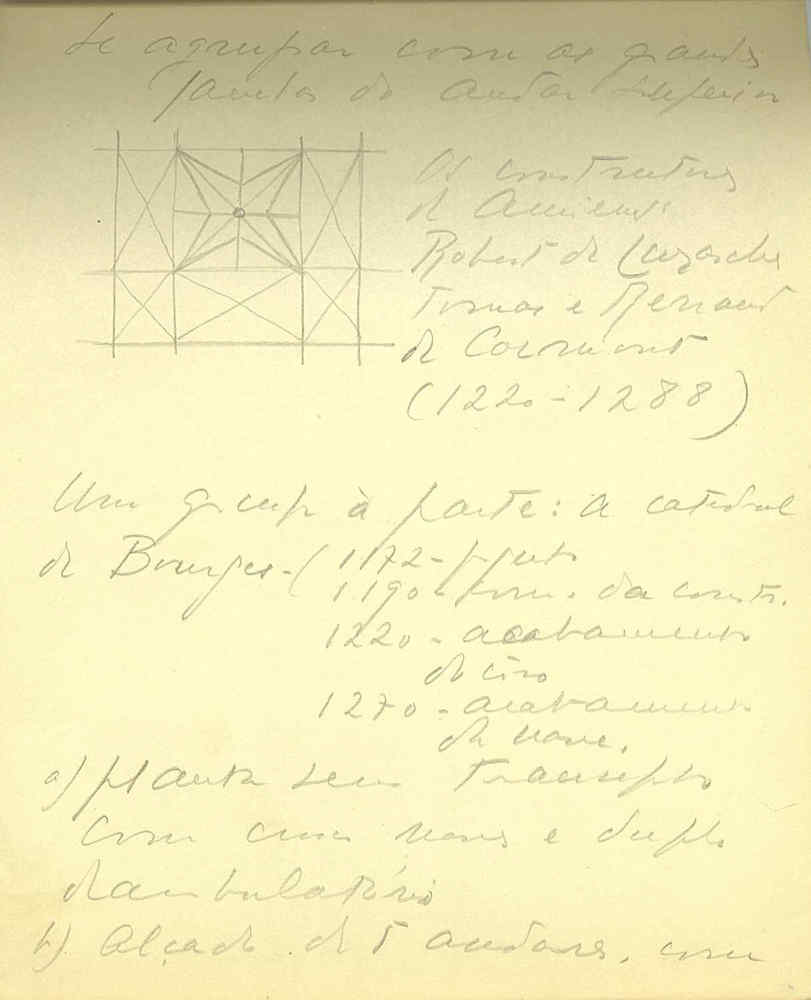 se agrupar com as grandes
janelas do andar superior
Os construtores
de Amiens:
Robert de Luzarche
Tomas e Renaud
de Cormont
(1220-1288)
Um grupo à parte: a catedral
de Bourges-(1172-projeto
1190- da constr.
1220- acabamento
do coro
1270- acabamento
da nave.
a) planta sem transepto
com cinco naves e duplo
deambulatório
b) Alçado de 5 andares, com